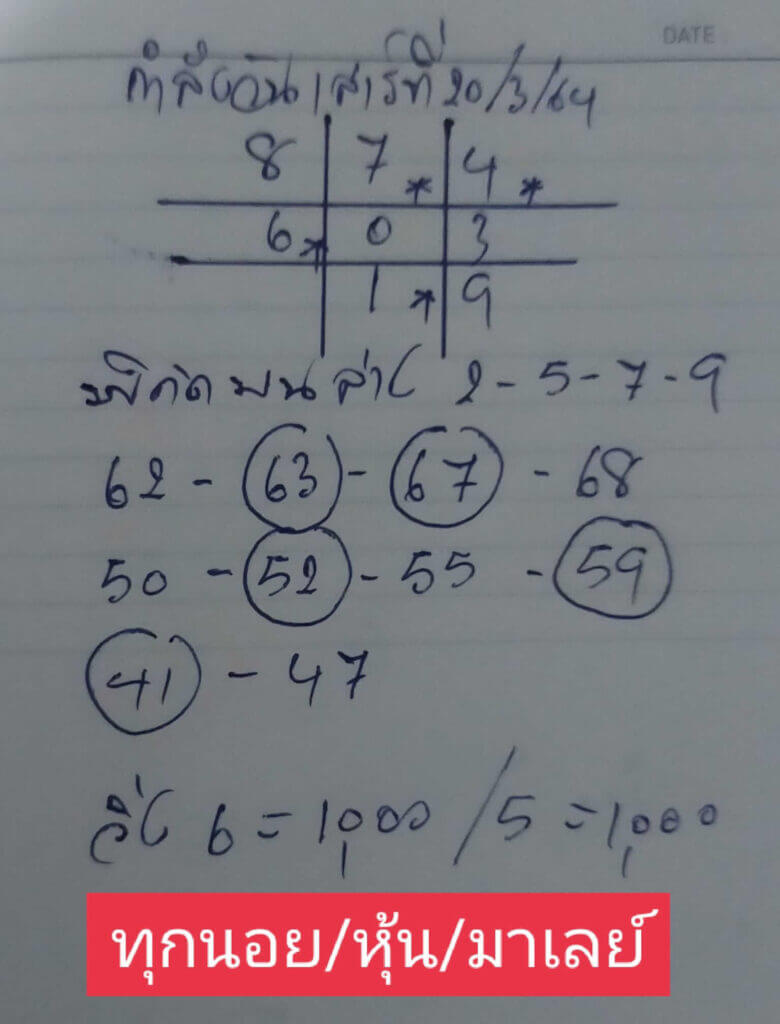 DATE
กำลังวันเสาร์ที่ 20/3/64
8 7* 4*
6* 0 3
1* 9
พิกัดบนล่าง 2-5-7-9
62 - 63 - 67 - 68
50 - 52 - 55 - 59
41 - 47
วิ่ง 6 = 1,000 / 5 = 1,000
ทุกนอย/หุ้น/มาเลย์